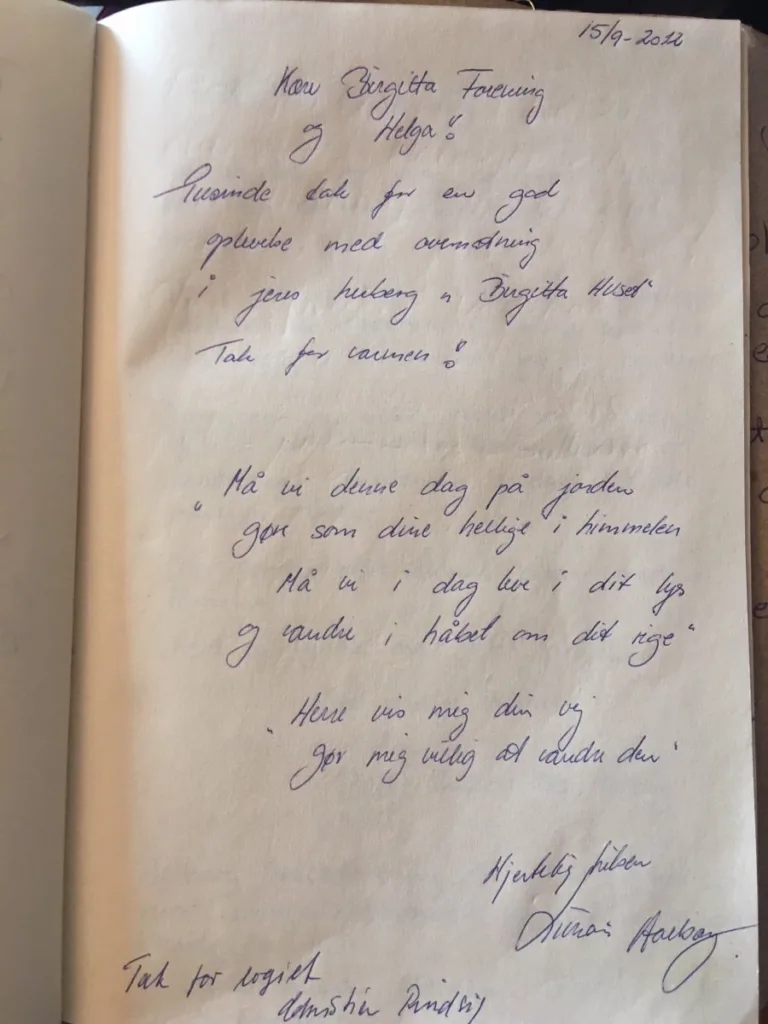 15/9-2012
Kære Birgitta Forening
og Helga!
Tusinde tak for en god
oplevelse med overnatning
i jeres herberg "Birgitta Huset"
Tak for varmen!
"Må vi denne dag på jorden
gøre som dine hellige i himmelen
Må vi i dag leve i dit lys
og vandre i håbet om dit rige"
"Herre vis mig din vej
gør mig villig at vandre den"
Hjertelig hilsen
Tak for logiet